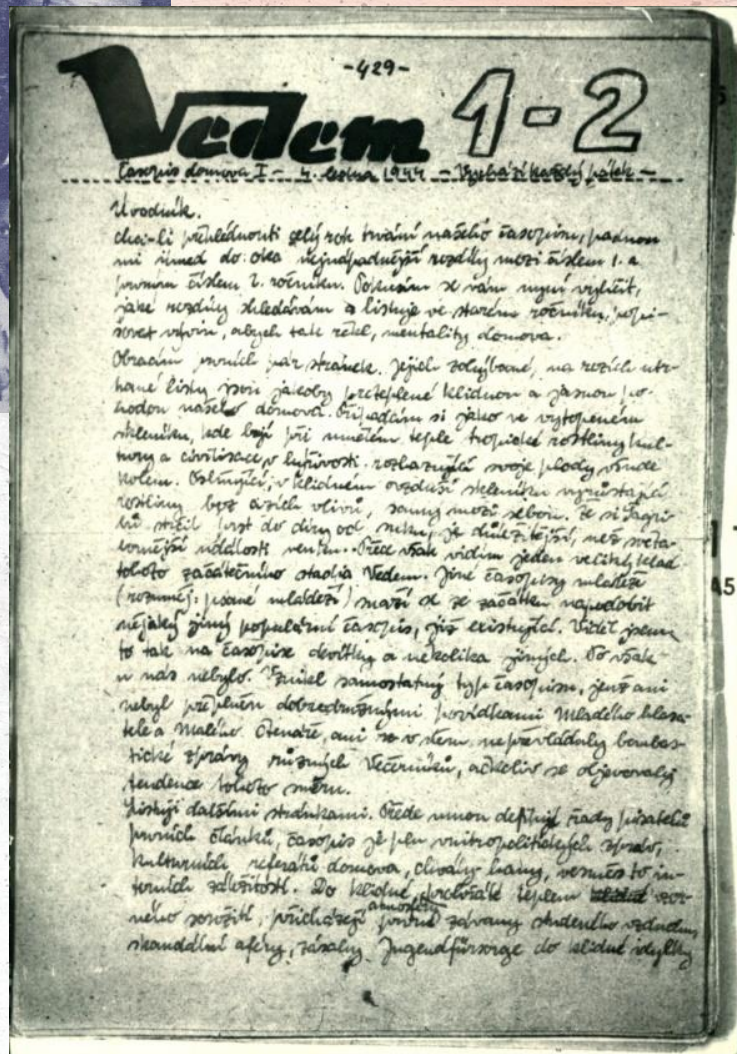 -429-
Vedem 1-2
Časopis domova I - 4. ledna 1944 - Vychází každý pátek -
Úvodník.
Chci-li přehlédnouti celý rok trvání našeho časopisu, padnou
mi ihned do oka nejnápadnější rozdíly mezi číslem 1. a
prvním číslem 2. ročníku. Pokusím se vám nyní vylíčit,
jaké rozdíly shledávám a listuje ve starém ročníku, popi-
sovat vývin, abych tak řekl, mentality domova.
Obracím prvních pár stránek. Jejich zohýbané, na rozích utr-
hané listy jsou jakoby proteplené klidnou a jasnou po-
hodou našeho domova. Připadám si jako ve vytopeném
skleníku, kde bují při umělém teple tropické rostliny kul-
tury a civilisace, v bujivosti rozhazující svoje plody všude
kolem. Oslňující, v klidném ovzduší skleníku vyrůstající
rostliny bez cizích vlivů, samy mezi sebou. Že si
strčil prst do díry od je důležitější, než světa-
bornější události venku. Přece však vidím jeden veliký klad
tohoto začátečního stadia Vedem. Jiné časopisy mládeže
(rozuměj: psané mládeží) snaží se ze začátku napodobit
nějaký jiný populární časopis, již existující. Viděl jsem
to tak na časopise devítky a několika jiných. To však
u nás nebylo. Vznikl samostatný typ časopisu, jenž ani
nebyl přeplněn dobrodružnými povídkami Mladého hlasa-
tele a Malého čtenáře, ani se v něm nepřevládaly bombas-
tické zprávy různých Večerníků, ačkoliv se objevovaly
tendence tohoto směru.
Listuji dalšími stránkami. Přede mnou defilují řady pisatelů
prvních článků, časopis je pln vnitropolitických zpráv,
kulturních referátů domova, chvály hany, vesměs to in-
terních záležitostí. Do klidné, teplem vzor-
ného soužití, atmosféry přicházejí prvně závany studeného vzduchu,
skandální aféry, zásahy Jugendfürsorge do klidné idylky